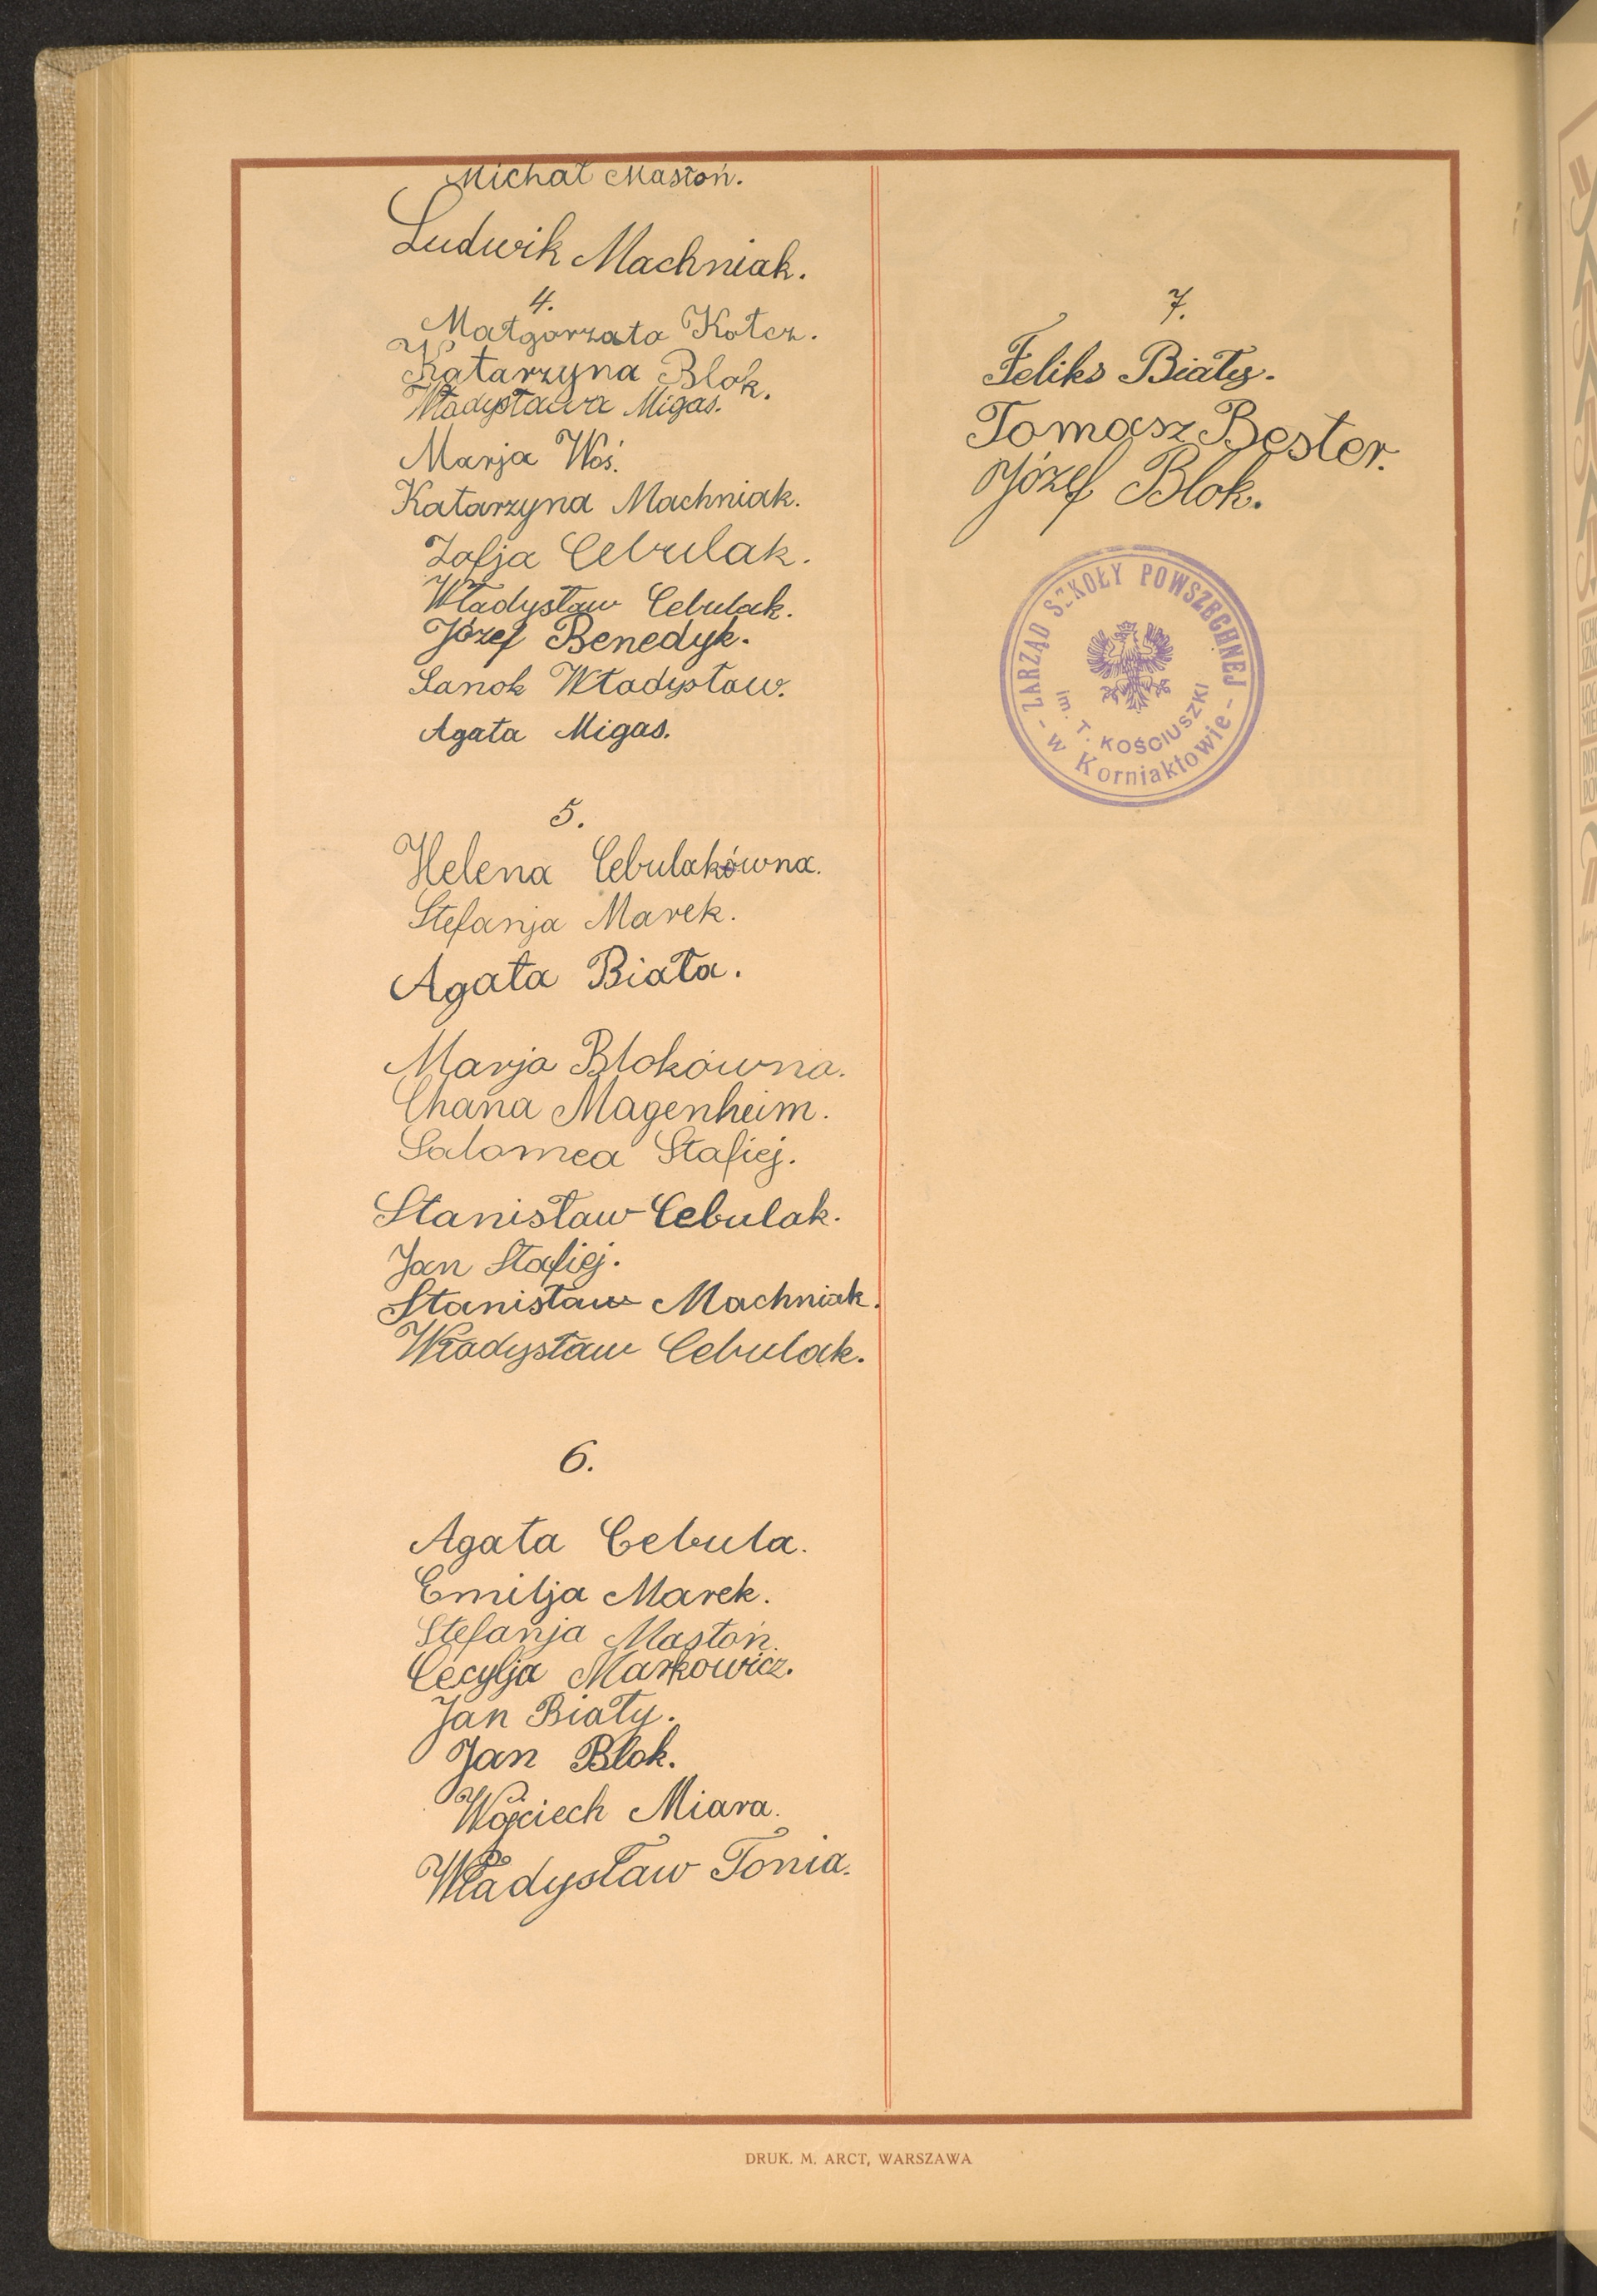 Michał Masłoń.
Ludwik Machniak.
4.
Małgorzata Kołcz.
Katarzyna Blok.
Władysława Migas.
Marja Woś.
Katarzyna Machniak.
Zofja Cebulak.
Władysław Cebulak.
Józef Benedyk.
Sanok Władysław.
Agata Migas.
5.
Helena Cebulakówna.
Stefanja Marek.
Agata Biała.
Marja Blokówna.
Chana Magenheim.
Salomea Stafiej.
Stanisław Cebulak.
Jan Stafiej.
Stanisław Machniak.
Władysław Cebulak.
6.
Agata Cebula.
Emilja Marek.
Stefanja Masłoń.
Cecylja Markowicz.
Jan Biały.
Jan Blok.
Wojciech Miara.
Władysław Tonia.
7.
Feliks Biały.
Tomasz Bester.
Józef Blok.
ZARZĄD SZKOŁY POWSZECHNEJ
im. T. KOŚCIUSZKI
- w Korniaktowie -
DRUK. M. ARCT, WARSZAWA